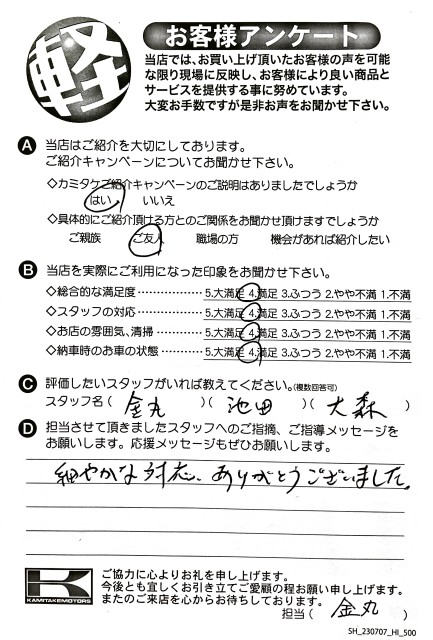 軽
お客様アンケート
当店では、お買い上げ頂いたお客様の声を可能
な限り現場に反映し、お客様により良い商品と
サービスを提供する事に努めています。
大変お手数ですが是非お声をお聞かせ下さい。
A 当店はご紹介を大切にしております。
ご紹介キャンペーンについてお聞かせ下さい。
◇カミタケご紹介キャンペーンのご説明はありましたでしょうか
はい いいえ
◇具体的にご紹介頂ける方とのご関係をお聞かせ頂けますでしょうか
ご親族 ご友人 職場の方 機会があれば紹介したい
B 当店を実際にご利用になった印象をお聞かせ下さい。
◇総合的な満足度 ⋯⋯⋯⋯ 5.大満足 4.満足 3.ふつう 2.やや不満 1.不満
◇スタッフの対応 ⋯⋯⋯⋯ 5.大満足 4.満足 3.ふつう 2.やや不満 1.不満
◇お店の雰囲気、清掃 ⋯⋯⋯ 5.大満足 4.満足 3.ふつう 2.やや不満 1.不満
◇納車時のお車の状態 ⋯⋯⋯ 5.大満足 4.満足 3.ふつう 2.やや不満 1.不満
C 評価したいスタッフがいれば教えてください。(複数回答可)
スタッフ名( 金丸 )( 池田 )( 大森 )
D 担当させて頂きましたスタッフへのご指摘、ご指導メッセージを
お願いします。応援メッセージもぜひお願いします。
細やかな対応、ありがとうございました。
K
KAMITAKEMOTORS
ご協力に心よりお礼を申し上げます。
今後とも宜しくお引き立てご愛顧の程お願い申し上げます。
またのご来店を心からお待ちしております。
担当( 金丸 )
SH_230707_HI_500